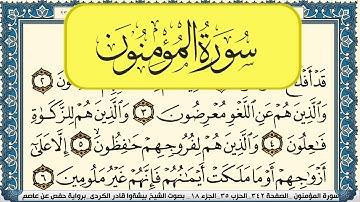 سُورَةُ الْمُؤْمِنُونَ
قَدْ أَفْلَحَ ٢
وَالَّذِينَ هُمْ عَنِ اللَّغْوِ مُعْرِضُونَ ٣ وَالَّذِينَ هُمْ لِلزَّكَوٰةِ
فَٰعِلُونَ ٤ وَالَّذِينَ هُمْ لِفُرُوجِهِمْ حَٰفِظُونَ ٥ إِلَّا عَلَىٰٓ
أَزْوَٰجِهِمْ أَوْ مَا مَلَكَتْ أَيْمَٰنُهُمْ فَإِنَّهُمْ غَيْرُ مَلُومِينَ ٦
سورة المؤمنون _ الصفحة ٣٤٢ _ الحزب ٣٥ _ الجزء ١٨ _ بصوت الشيخ بيشةوا قادر الكردى _ برواية حفص عن عاصم